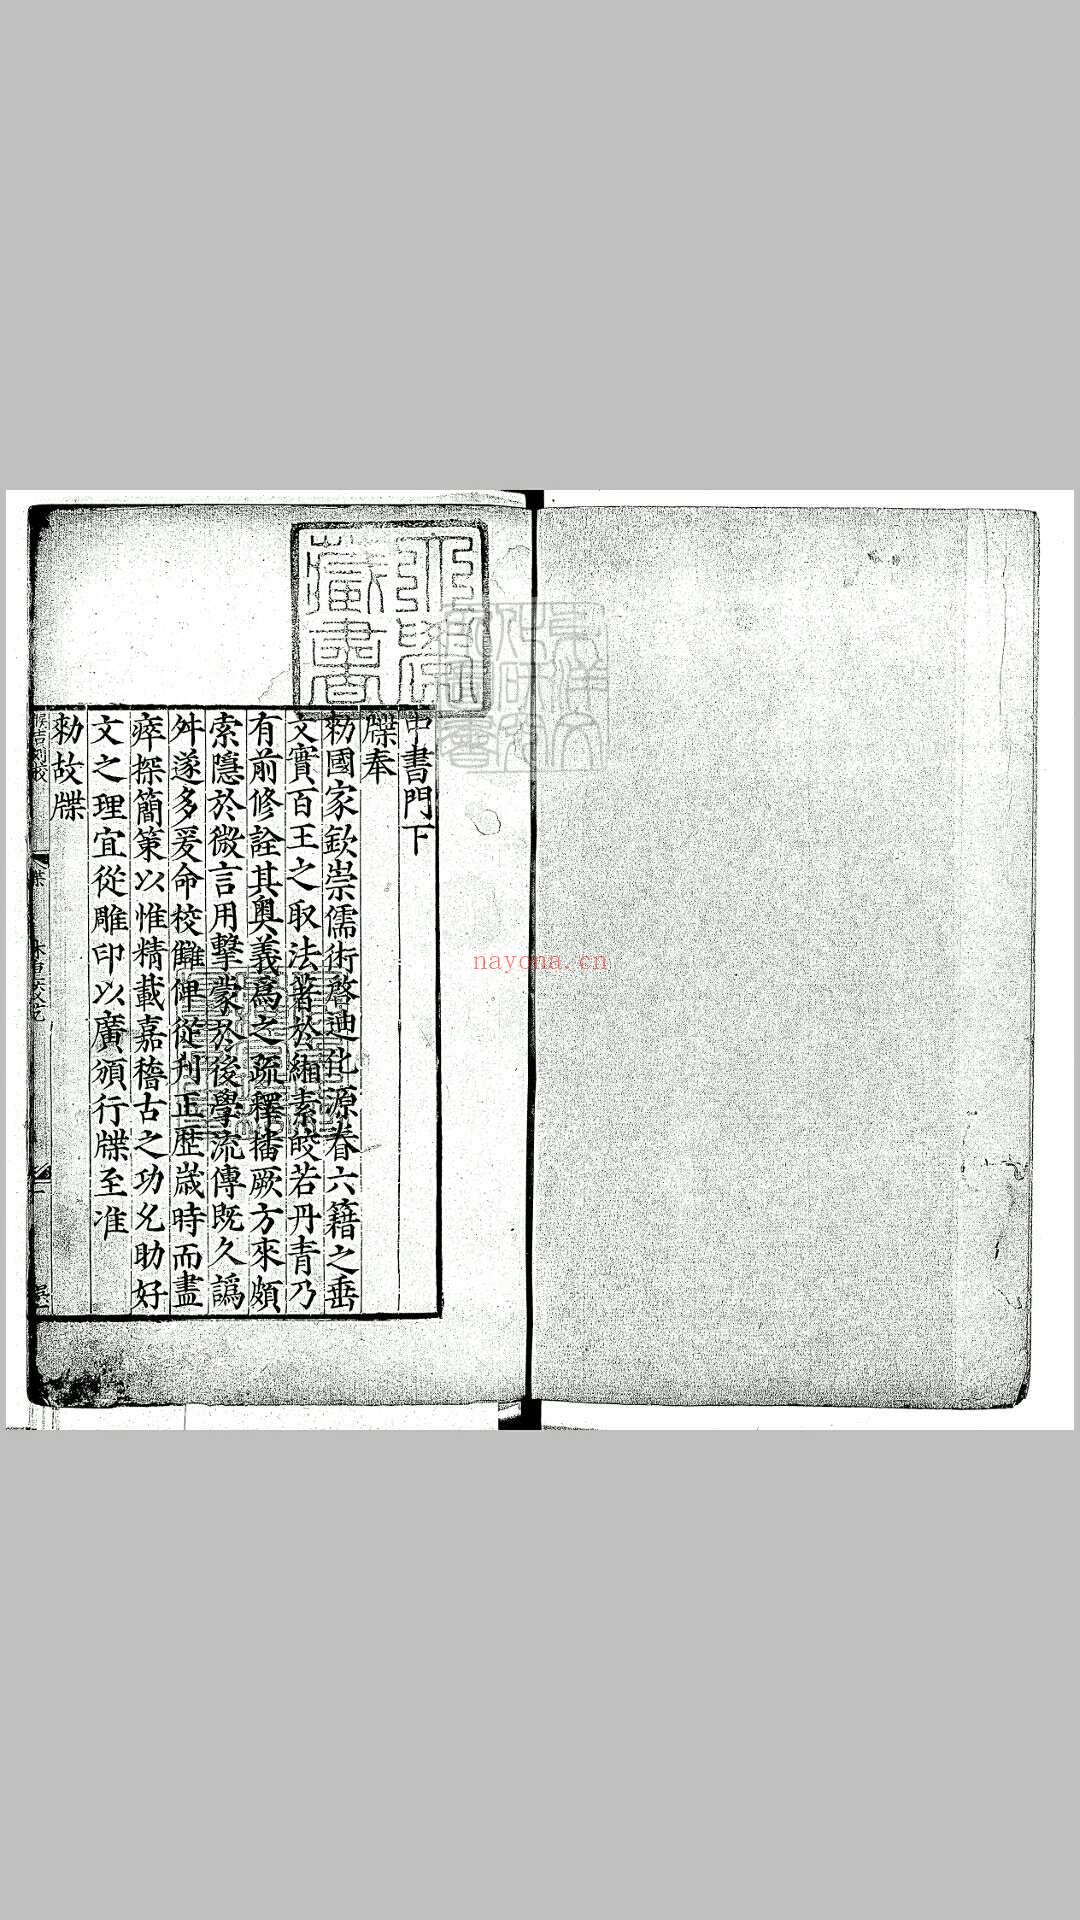 中書門下
牒奉
勑國家欽崇儒術啓迪化源眷六籍之垂
文實百王之取法著於緗素皎若丹青乃
有前修詮其奥義爲之疏釋播厥方來頗
索隱於微言用擊蒙於後學流傳既久譌
舛遂多爰命校讎俾從刋正歴歳時而盡
瘁探簡策以惟精載嘉稽古之功允助好
文之理宜從雕印以廣頒行牒至准
勑故牒
藏書
nayona.cn